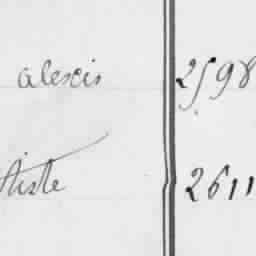 alexis 2598
tiste 2611